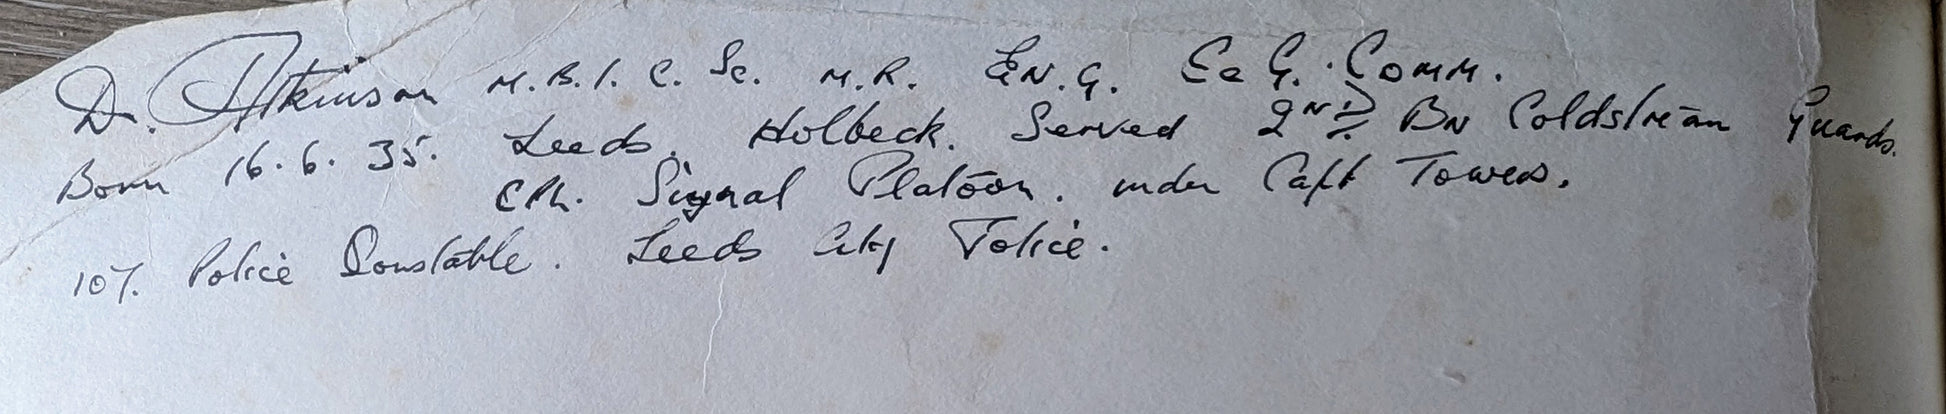 D. Atkinson M.B.I.C.Sc. M.R. EN.G. Comm.
Born 16.6.35. Leeds. Holbeck. Served 2ND BN Coldstream Guards.
Signal Platoon. under Capt Towers.
107. Police Constable. Leeds City Police.